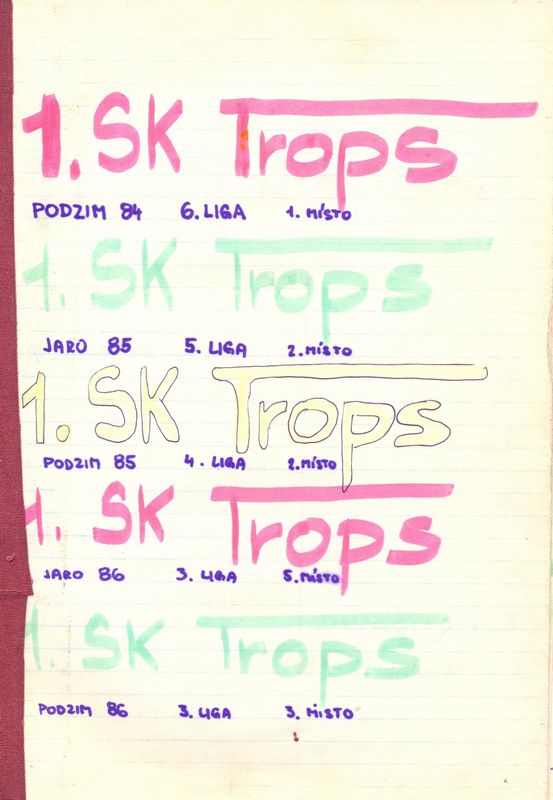 1. SK Trops
PODZIM 84 6. LIGA 1. MÍSTO
1. SK Trops
JARO 85 5. LIGA 2. MÍSTO
1. SK Trops
PODZIM 85 4. LIGA 2. MÍSTO
1. SK Trops
JARO 86 3. LIGA 5. MÍSTO
1. SK Trops
PODZIM 86 3. LIGA 3. MÍSTO